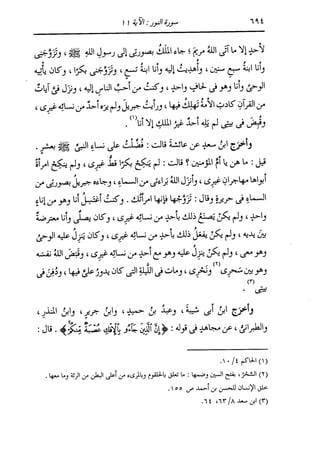 ٦٩٤ سورة النور : الآية ١١
لأحدٍ إلا ما آتى اللهُ مريمَ ؛ جاء الملَكُ بصورتى إلى رسولِ اللهِ ﷺ ، وتزوَّجنى
وأنا ابنةُ سبعِ سنين ، وأُهدِيتُ إليه وأنا ابنةُ تسعٍ ، وتزوَّجنى بكرًا ، وكان يأتيه
الوحىُ وأنا وهو فى لحافٍ واحدٍ ، وكنتُ من أحبِّ الناسِ إليه ، ونزَل فىَّ آياتٌ
من القرآنِ كادتِ الأمةُ تهلِكُ فيها ، ورأيتُ جبريلَ ولم يرَه أحدٌ من نسائِه غيرى ،
وقُبِض فى بيتى لم يَلِه أحدٌ غيرُ الملَكِ إلا أنا(١) .
وأخرَج ابنُ سعدٍ عن عائشةَ قالت : فُضِّلتُ على نساءِ النبىِّ ﷺ بعشرٍ .
قيل : ما هن يا أمَّ المؤمنين ؟ قالت : لم ينكِحْ بكرًا قطُّ غيرى ، ولم ينكِحْ امرأةً
أبواها مهاجران غيرى ، وأنزَل اللهُ براءتى من السماءِ ، وجاءه جبريلُ بصورتى من
السماءِ فى حريرةٍ وقال : تزوَّجْها فإنها امرأتُك . وكنتُ أغتسِلُ أنا وهو من إناءٍ
واحدٍ ، ولم يكنْ يَصنَعُ ذلك بأحدٍ من نسائِه غيرى ، وكان يصلِّى وأنا معترضةٌ
بينَ يديه ، ولم يكنْ يفعَلُ ذلك بأحدٍ من نسائِه غيرى ، وكان ينزِلُ عليه الوحىُ
وهو معى ، ولم يكنْ ينزِلُ عليه وهو مع أحدٍ من نسائِه غيرى ، وقبَض اللهُ نفسَه
وهو بينَ سَحْرى(٢) ونَحْرى ، ومات فى الليلةِ التى كان يدورُ علىَّ فيها ، ودُفِن فى
بيتى(٣) .
وأخرَج ابنُ أبى شيبةَ ، وعبدُ بنُ حميدٍ ، وابنُ جريرٍ ، وابنُ المنذرِ ،
والطبرانىُّ ، عن مجاهدٍ فى قولِه : ﴿إِنَّ الَّذِينَ جَاءُو بِالْإِفْكِ عُصْبَةٌ مِّنكُمْ﴾ . قال :
(١) الحاكم ٤/ ١٠.
(٢) السَّحْر، بفتح السين وضمها : ما تعلق بالحلقوم وبالمرىء من أعلى البطن من الرئة وما معها .
خلق الإنسان للحسن بن أحمد ص ١٥٥.
(٣) ابن سعد ٨/ ٦٣، ٦٤.